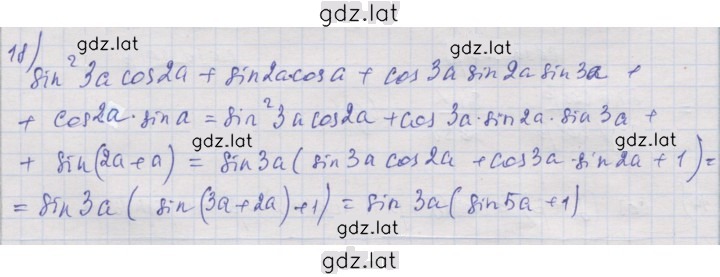 gdz.lat
18)
gdz.lat
gdz.lat
sin²3a cos2a + sin2a cos a + cos 3a sin2a sin3a +
+ cos2a · sin a = sin²3a cos2a + cos 3a · sin2a · sin 3a +
gdz.lat
gdz.lat
+ sin(2a+a) = sin3a ( sin3a cos2a + cos3a · sin2a + 1) =
= sin3a ( sin (3a+2a) + 1) = sin 3a ( sin5a + 1)
gdz.lat
gdz.lat
gdz.lat